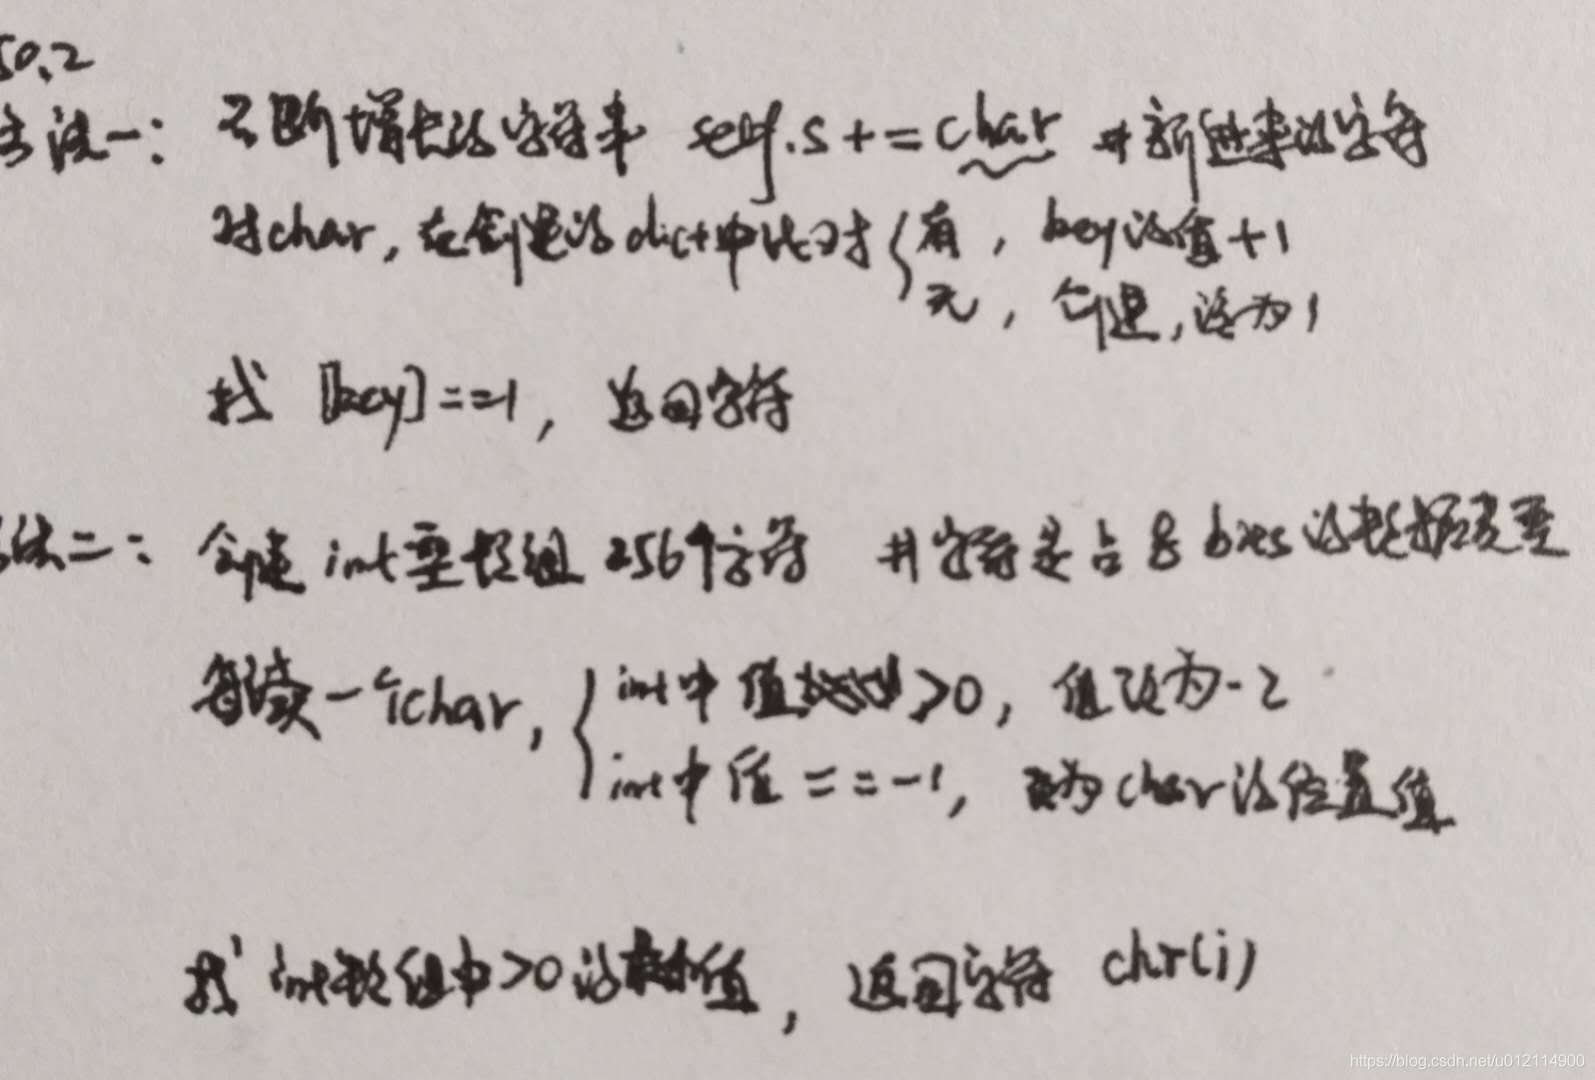 50.2
方法一: 不断增长的字符串 self.s += char #新进来的字符
对char, 在创建的dict中比对 { 有, key的值+1
无, 创建, 设为1
找 [key]==1, 返回字符
方法二: 创建int型数组256个字符 #字符是占8bits的数据类型
每读一个char, { int中值>0, 值改为-2
int中值==-1, 改为char的位置值
找int数组中>0的最小值, 返回字符 chr(i)
https://blog.csdn.net/u012114900